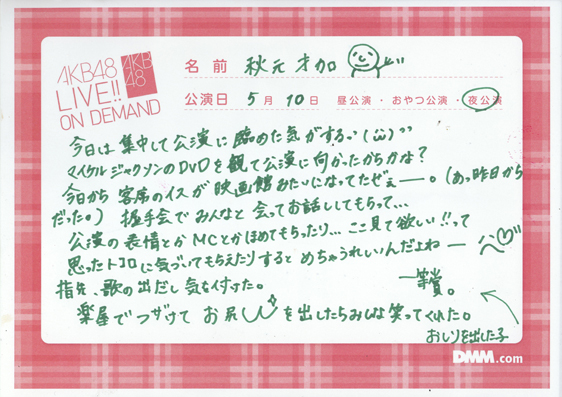 AKB48
LIVE!!
ON DEMAND
AKB
48
名前 秋元才加
公演日 5月10日 昼公演・おやつ公演・夜公演
今日は集中して公演に臨めた気がする"(ω)"
マイケルジャクソンのDVDを観て公演に向かったからかな?
今日から客席のイスが映画館みたいになってたぜぇー。(あっ昨日から
だった。) 握手会でみんなと会ってお話ししてもらって...
公演の表情とかMCとかほめてもらったり...ここ見て欲しい!!って
思ったトコロに気づいてもらえたりするとめちゃうれしいんだよねー
指先、歌の出だし気を付けた。 一等賞。
楽屋でフザけてお尻を出したらみんな笑ってくれた。
おしりを出した子
DMM.com